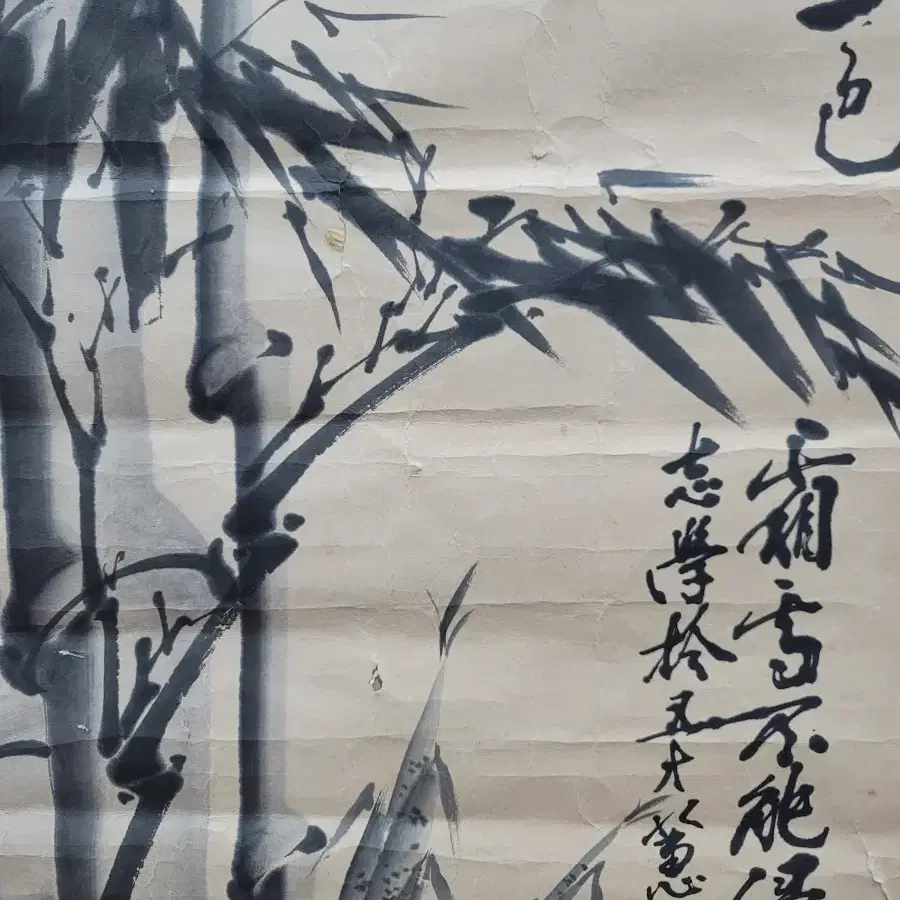 一色
霜雪不能
志學於五